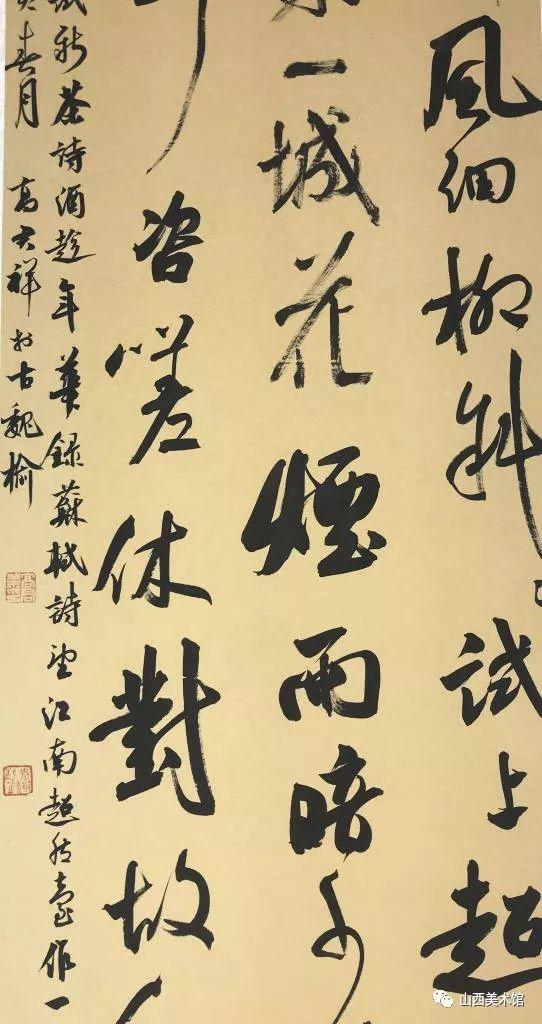 風細柳斜〻試上超
一城花煙雨暗千
咨嗟休對故
試新茶詩酒趁年華錄蘇軾詩望江南超然臺作一
春月 高祥於古魏榆
山西美术馆